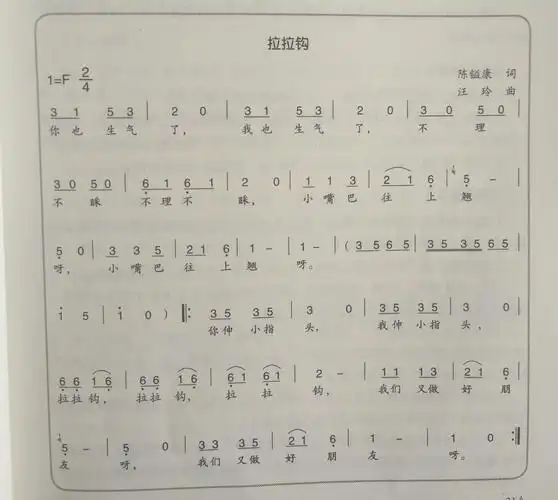 拉拉钩
1=F 2/4
陈镒康 词
汪玲 曲
3 1 5 3 | 2 0 | 3 1 5 3 | 2 0 | 3 0 5 0 |
你也 生气 了， 我也 生气 了， 不 理
3 0 5 0 | 6 1 6 1 | 2 0 | 1 1 3 | 2 1 6 | 5 - |
不 睬 不理不 睬， 小嘴巴 往 上 翘
5 0 | 3 3 5 | 2 1 6 | 1 - | 1 - | ( 3 5 6 5 | 3 5 3 5 6 5 |
呀， 小嘴巴 往 上 翘 呀。
1 5 | 1 0 ) ‖: 3 5 3 5 | 3 0 | 3 5 3 5 | 3 0 |
你伸 小指 头， 我伸 小指 头，
6 6 1 6 | 6 6 1 6 | 6 1 6 1 | 2 - | 1 1 1 3 | 2 1 6 |
拉拉 钩， 拉拉 钩， 拉 拉 钩， 我们 又做 好 朋
5 - | 5 0 | 3 3 3 5 | 2 1 6 | 1 - | 1 0 :‖
友 呀， 我们 又做 好 朋 友 呀。